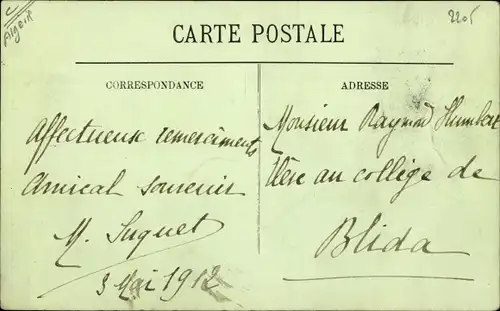 Algeir
2205
CARTE POSTALE
CORRESPONDANCE
Affectueux remerciments
Amical souvenir
M. Suquet
3 Mai 1912
ADRESSE
Monsieur Raymond Humbert
Élève au collège de
Blida